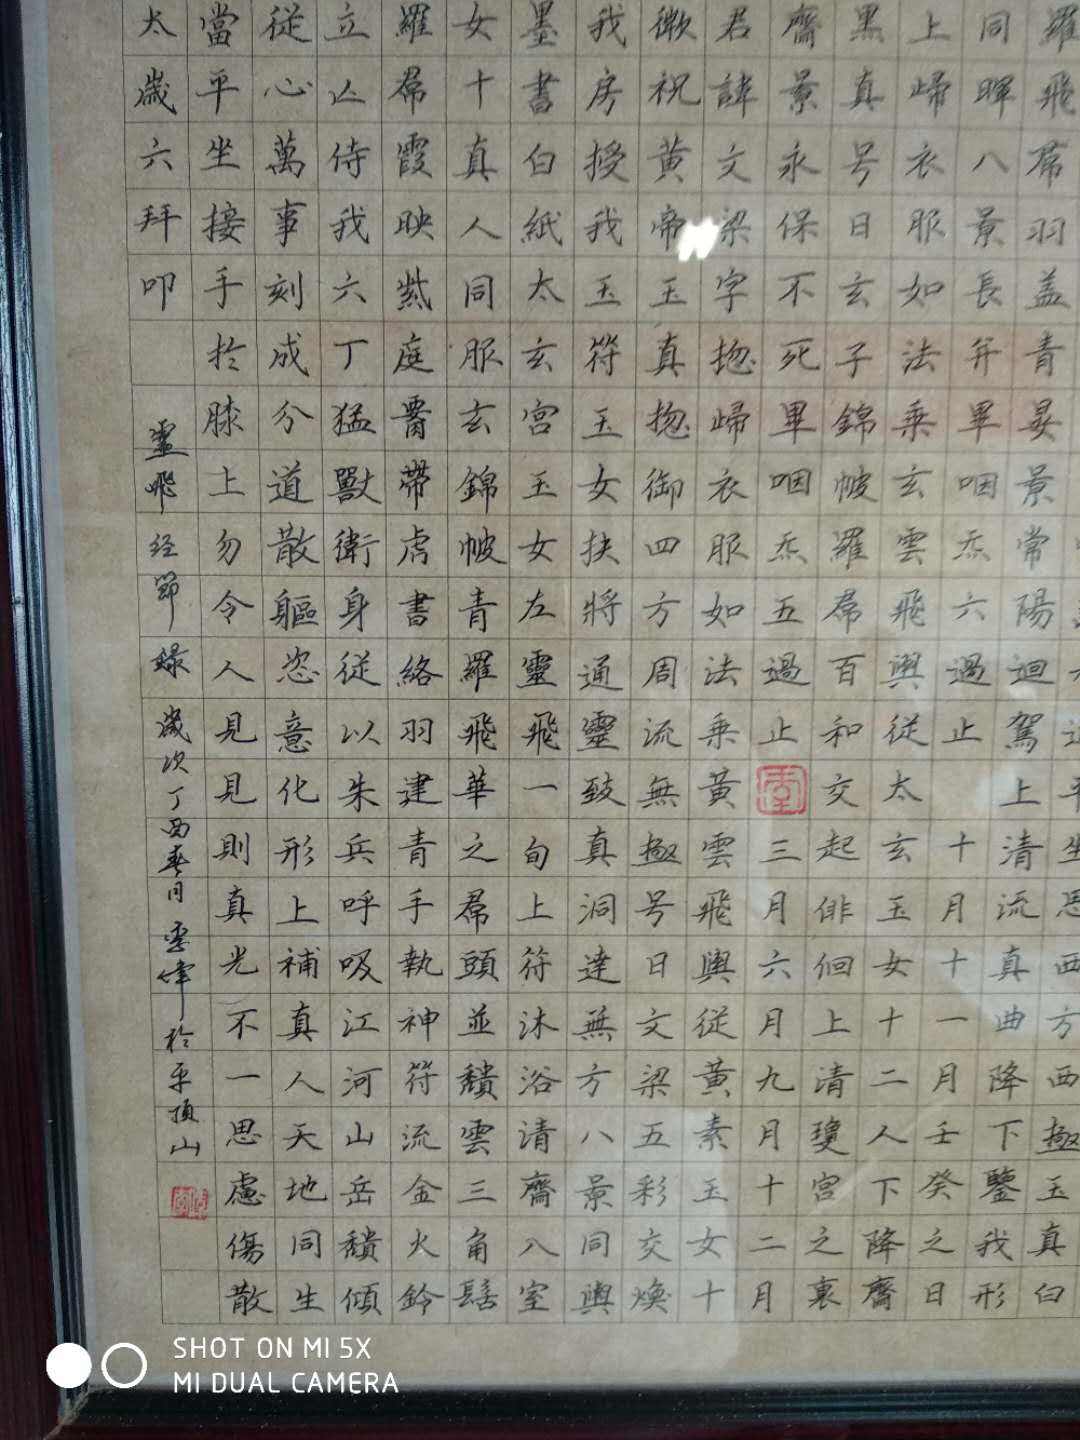 平坐思西方西極玉真白
羅飛帬羽盖青晏景常陽迴駕上清流真曲降下鑒我形
同暉八景長并畢咽炁六過止 十月十一月壬癸之日
上歸衣服如法乘玄雲飛輿從太玄玉女十二人下降齋
黑真号日玄子錦帔羅帬百和交起俳佪上清瓊宮之裏
齋景永保不死畢咽炁五過止 三月六月九月十二月
君諱文梁字揔歸衣服如法乘黃雲飛輿從黃素玉女十
微祝黃帝玉真揔御四方周流無極号日文梁五彩交煥
我房授我玉符玉女扶將通靈致真洞達無方八景同輿
墨書白紙太玄宮玉女左靈飛一旬上符沐浴清齋入室
女十真人同服玄錦帔青羅飛華之帬頭並頹雲三角髻
羅帬霞映紫庭腰帶虎書絡羽建青手執神符流金火鈴
立亾侍我六丁猛獸衛身從以朱兵呼吸江河山岳頹傾
從心萬事刻成分道散軀恣意化形上補真人天地同生
當平坐接手於膝上勿令人見見則真光不一思慮傷散
太歲六拜叩
靈飛经節録 歲次丁酉春月 李偉於平頂山
SHOT ON MI 5X
MI DUAL CAMERA